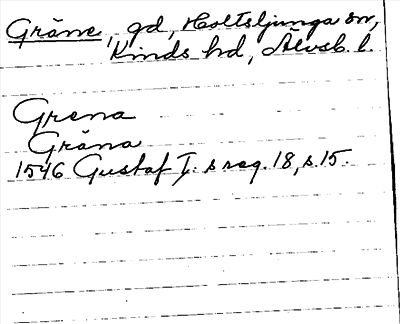 Gräne, gd, Holtsljunga sn,
Kinds hd, Älvsb. l.
Grena
Gräna
1546 Gustaf I: s reg. 18, s. 15.